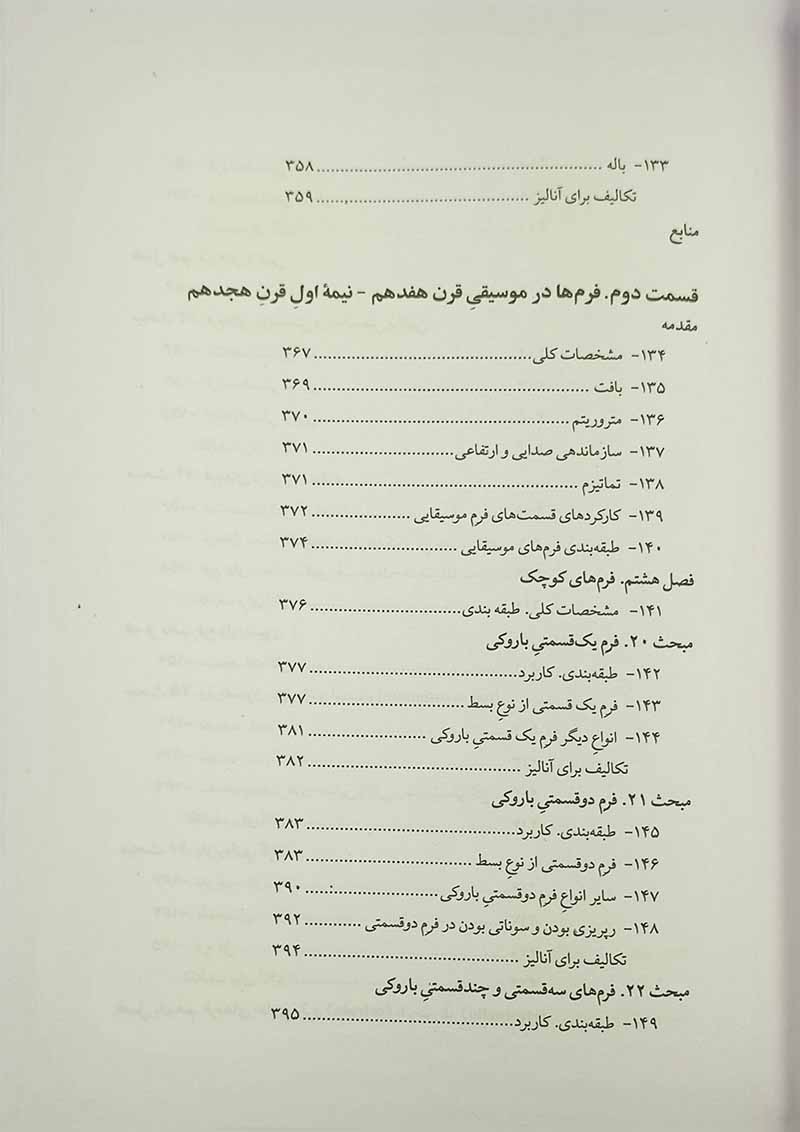 ۱۳۳- باله ........ ۳۵۸
تکالیف برای آنالیز ........ ۳۵۹
منابع
قسمت دوم. فرم‌ها در موسیقیِ قرن هفدهم - نیمهٔ اولِ قرنِ هجدهم
مقدمه
۱۳۴- مشخصات کلی ........ ۳۶۷
۱۳۵- بافت ........ ۳۶۹
۱۳۶- متروریتم ........ ۳۷۰
۱۳۷- سازماندهی صدایی و ارتفاعی ........ ۳۷۱
۱۳۸- تماتیزم ........ ۳۷۱
۱۳۹- کارکردهای قسمت‌های فرم موسیقایی ........ ۳۷۲
۱۴۰- طبقه‌بندی فرم‌های موسیقایی ........ ۳۷۴
فصل هشتم. فرم‌های کوچک
۱۴۱- مشخصات کلی. طبقه بندی ........ ۳۷۶
مبحث ۲۰. فرم یک‌قسمتیِ باروکی
۱۴۲- طبقه‌بندی. کاربرد ........ ۳۷۷
۱۴۳- فرمِ یک قسمتی از نوعِ بسط ........ ۳۷۷
۱۴۴- انواعِ دیگر فرم یک قسمتیِ باروکی ........ ۳۸۱
تکالیف برای آنالیز ........ ۳۸۲
مبحث ۲۱. فرمِ دوقسمتیِ باروکی
۱۴۵- طبقه‌بندی. کاربرد ........ ۳۸۳
۱۴۶- فرمِ دوقسمتی از نوعِ بسط ........ ۳۸۳
۱۴۷- سایر انواعِ فرمِ دوقسمتیِ باروکی ........ ۳۹۰
۱۴۸- رپریزی بودن و سوناتی بودن در فرمِ دوقسمتی ........ ۳۹۲
تکالیف برای آنالیز ........ ۳۹۴
مبحث ۲۲. فرم‌های سه‌قسمتی و چندقسمتیِ باروکی
۱۴۹- طبقه‌بندی. کاربرد ........ ۳۹۵